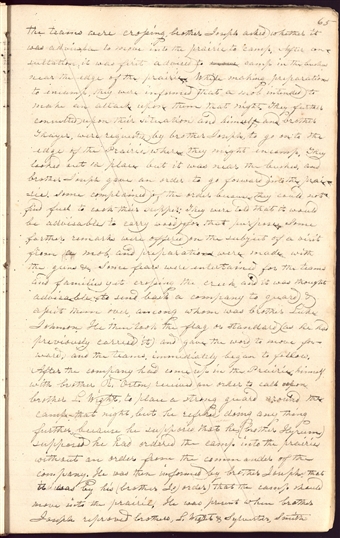 65
the teams were crossing brother Joseph asked whether it
was advisable to move into the prairie to camp. After con-
sultation, it was first advised to camp in the bushes
near the edge of the prairie. While making preparation
to encamp, they were informed that a mob intended to
make an attack upon them that night. They further
consulted upon their situation and himself and brother
Thayer, were requested by brother Joseph, to go on to the
edge of the Prairie, where they might encamp. They
looked out the place but it was near the bushes, and
brother Joseph gave an order to go forward into the prai-
rie. Some complained of the order because they could not
find fuel to cook their supper. They were told that it would
be advisable to carry wood for that purpose. Some
further remarks were offered on the subject of a visit
from a mob, and preparations were made with
the guns &c. Some fears were entertained for the teams
and families yet crossing the creek and it was thought
advisable to send back a company to guard &
assist them over among whom was brother Luke
Johnson. He then took the flag or standard (as he had
previously carried it) and gave the word to move for-
ward, and the teams immediately began to follow.
After the company had come up in the Prairie, himself
with brother R. Orton, received an order to call upon
brother L. Wight, to place a strong guard around the
camp that night, but he refused doing any thing
further, because he supposed that he (brother Hyrum)
supposed he had ordered the camp into the prairie
without an order from the commander of the
company. He was then informed by brother Joseph, that
it was by his (brother J's) order, that the camp should
move into the prairie. He was present when brother
Joseph reproved brothers L. Wight & Sylvester Smith